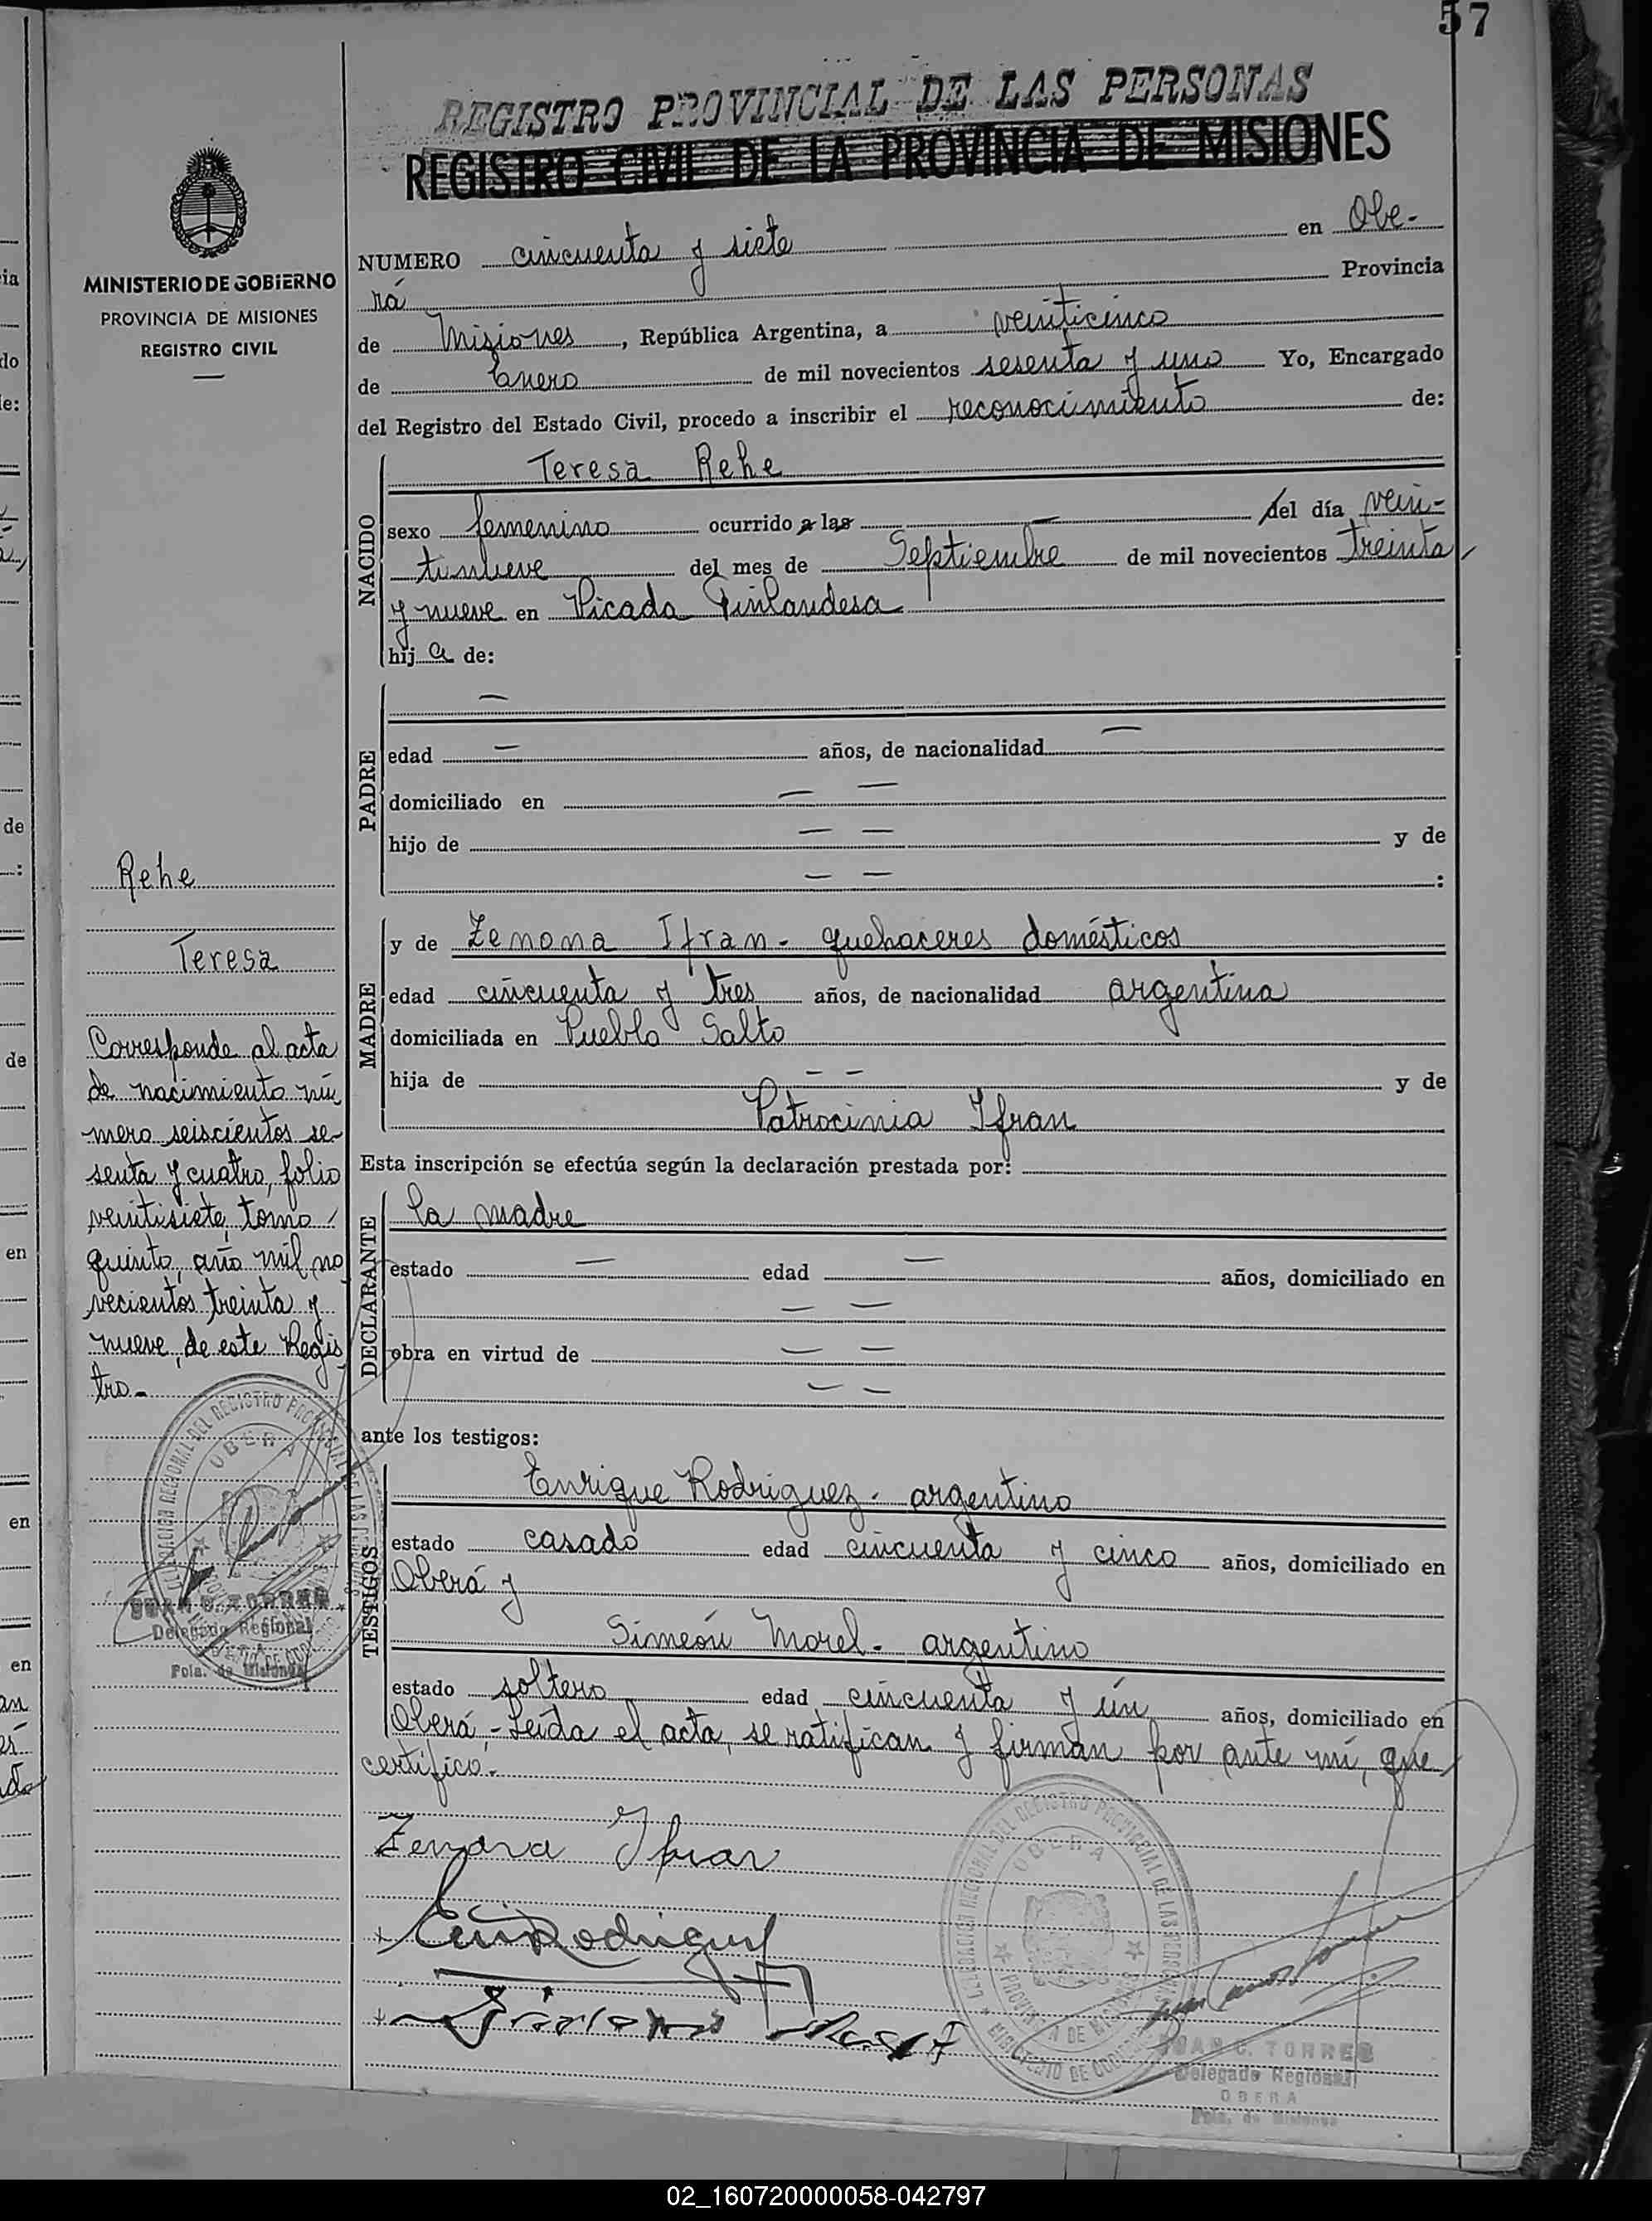 57
REGISTRO PROVINCIAL DE LAS PERSONAS
REGISTRO CIVIL DE LA PROVINCIA DE MISIONES
MINISTERIO DE GOBIERNO
PROVINCIA DE MISIONES
REGISTRO CIVIL
NUMERO cincuenta y siete en Obe-
rá Provincia
de Misiones, República Argentina, a veinticinco
de Enero de mil novecientos sesenta y uno Yo, Encargado
del Registro del Estado Civil, procedo a inscribir el reconocimiento de:
NACIDO
Teresa Rehe
sexo femenino ocurrido a las — del día vein-
tinueve del mes de Septiembre de mil novecientos treinta
y nueve en Picada Finlandesa
hija de:
PADRE
—
edad — años, de nacionalidad —
domiciliado en — —
hijo de — — y de
— — :
MADRE
y de Zenona Ifran - quehaceres domésticos
edad cincuenta y tres años, de nacionalidad argentina
domiciliada en Pueblo Salto
hija de — — y de
Patrocinia Ifran
Esta inscripción se efectúa según la declaración prestada por:
DECLARANTE
la madre
estado — edad — años, domiciliado en
— —
obra en virtud de — —
— —
ante los testigos:
TESTIGOS
Enrique Rodriguez - argentino
estado casado edad cincuenta y cinco años, domiciliado en
Oberá y
Simeón Morel - argentino
estado soltero edad cincuenta y ún años, domiciliado en
Oberá,- Leída el acta, se ratifican y firman por ante mí, que
certifico.-
Rehe
Teresa
Corresponde al acta
de nacimiento nú
mero seiscientos se-
senta y cuatro, folio
veintisiete, tomo
quinto, año mil no
vecientos treinta y
nueve, de este Regis
tro.-
DELEGACION REGIONAL DEL REGISTRO PROVINCIAL DE LAS PERSONAS
OBERA
JUAN C. TORRES
Delegado Regional
OBERA
Pcia. de Misiones
Zenona Ifran
Rodriguez
DELEGACION REGIONAL DEL REGISTRO PROVINCIAL DE LAS PERSONAS
OBERA
PROVINCIA DE MISIONES
MINISTERIO DE GOBIERNO
JUAN C. TORRES
Delegado Regional
OBERA
Pcia. de Misiones
02_160720000058-042797